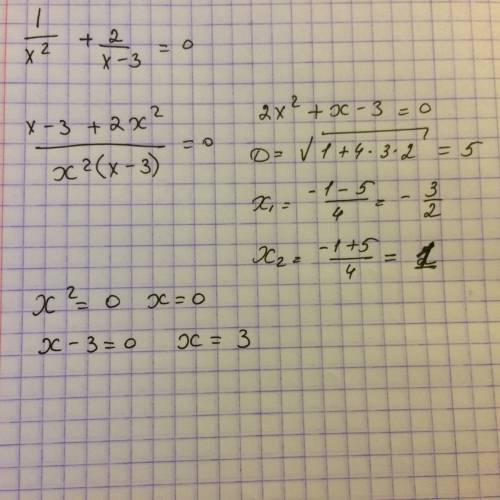 1/x² + 2/(x-3) = 0
(x-3+2x²)/(x²(x-3)) = 0
2x² + x - 3 = 0
D = √(1+4·3·2) = 5
x₁ = (-1-5)/4 = -3/2
x₂ = (-1+5)/4 = 1
x² = 0 x = 0
x - 3 = 0 x = 3